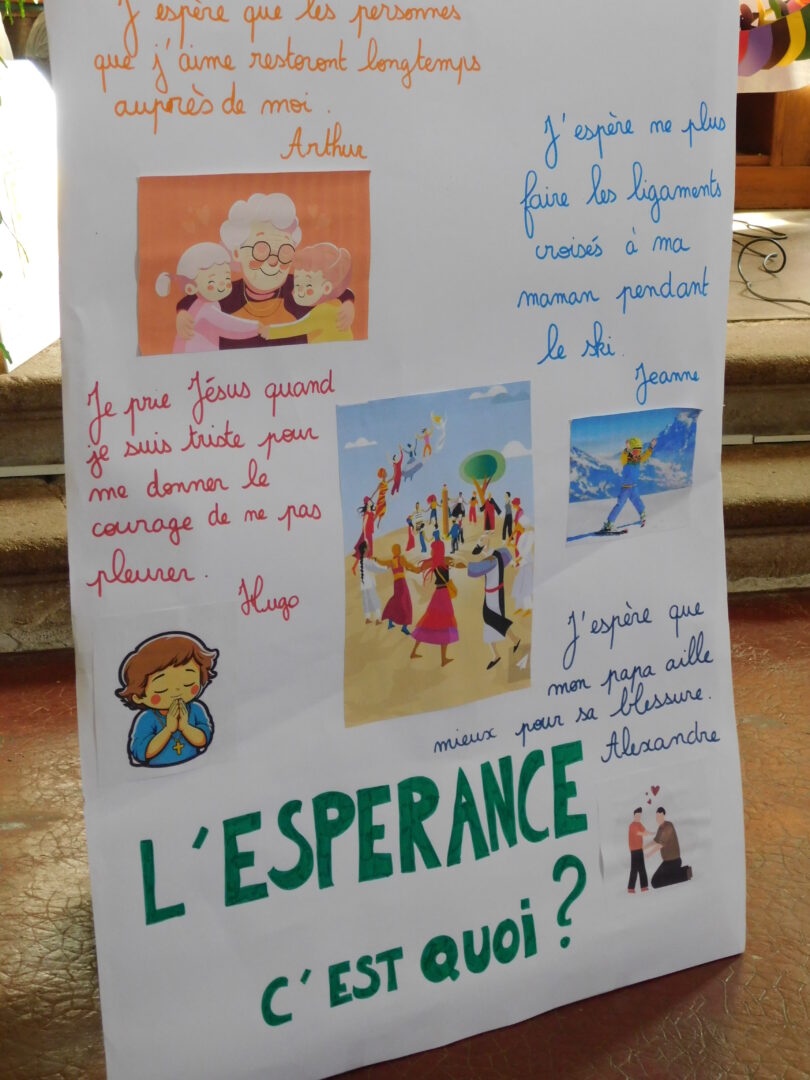 J'espère que les personnes
que j'aime resteront longtemps
auprès de moi.
Arthur
J'espère ne plus
faire les ligaments
croisés à ma
maman pendant
le ski.
Jeanne
Je prie Jésus quand
je suis triste pour
me donner le
courage de ne pas
pleurer.
Hugo
J'espère que
mon papa aille
mieux pour sa blessure.
Alexandre
L'ESPERANCE
C'EST QUOI ?